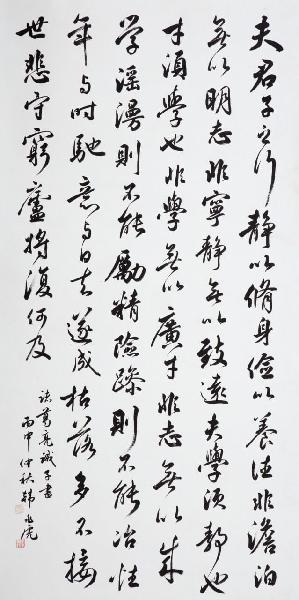 夫君子之行静以脩身儉以養德非澹泊
無以明志非寧静無以致遠夫學須静也
才須學也非學無以廣才非志無以成
学滛漫則不能勵精險躁則不能冶性
年与时馳意与日去遂成枯落多不接
世悲守窮廬將復何及
諸葛亮誡子書
丙申仲秋韩